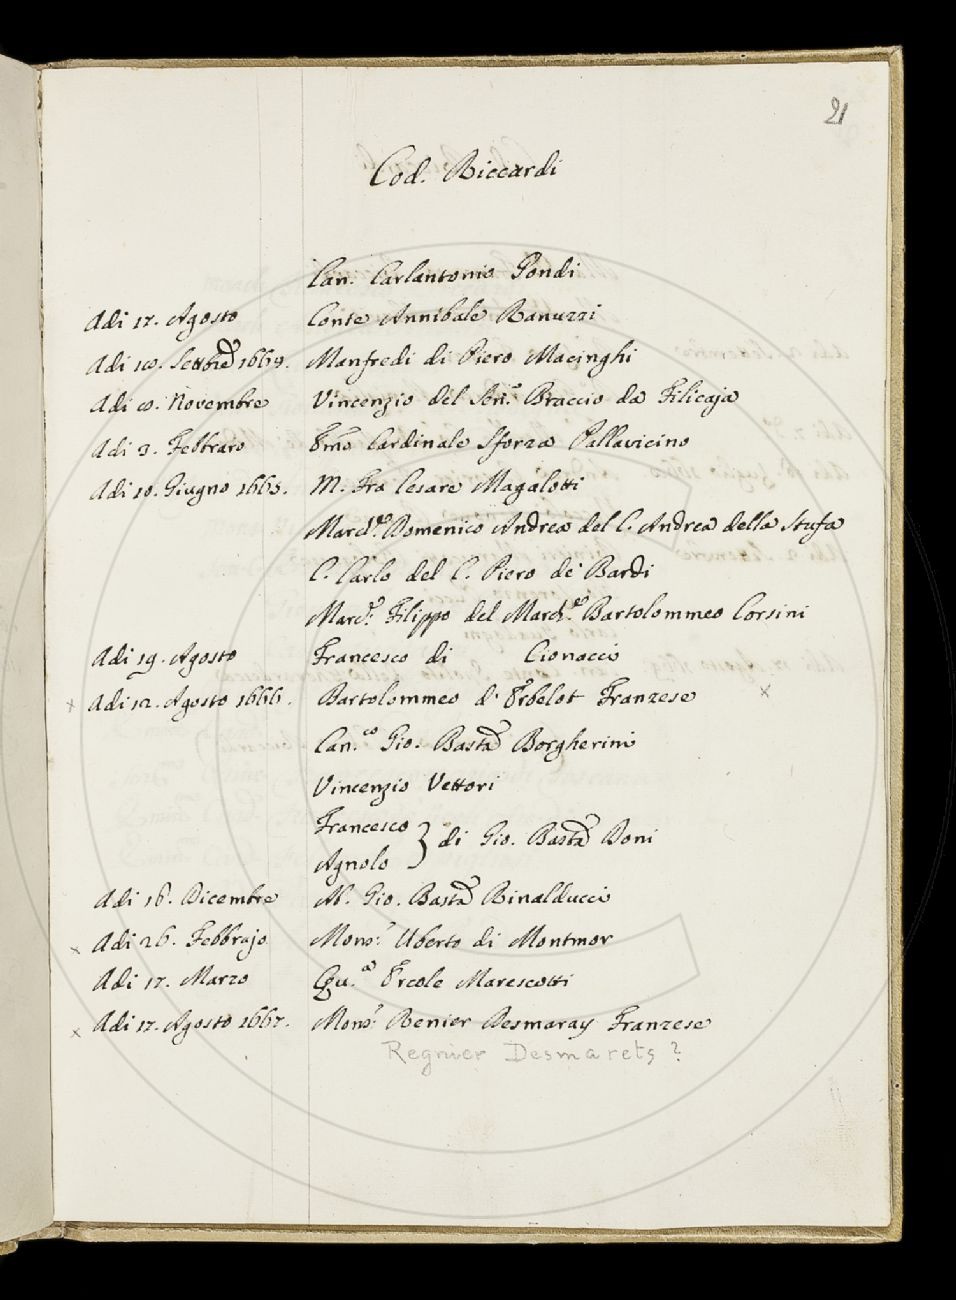 21
Cod. Riccardi
Can. Carlantonio Gondi
Adi 17. Agosto Conte Annibale Ranuzzi
Adi 10. Settbre 1664. Manfredi di Piero Macinghi
Adi Novembre Vincenzio del Sen.re Braccio da Filicaja
Adi 3. Febbraro Emo Cardinale Sforza Pallavicino
Adi 10. Giugno 1665. M. Fra Cesare Magalotti
March.se Domenico Andrea del C. Andrea della Stufa
C. Carlo del C. Piero de' Bardi
Marc.e Filippo del March.se Bartolommeo Corsini
Adi 19. Agosto Francesco di Cionacci
x Adi 12. Agosto 1666. Bartolommeo d' Erbelot Franzese x
Can.co Gio. Basta Borgherini
Vincenzio Vettori
Francesco
Agnolo } di Gio. Basta Doni
Adi 16. Dicembre Ab. Gio. Basta Rinalducci
x Adi 26. Febbrajo Mons.r Uberto di Montmor
Adi 17. Marzo Ercole Marescotti
x Adi 17. Agosto 1667. Mons.r Renier Desmaray Franzese
Regnier Desmarets ?